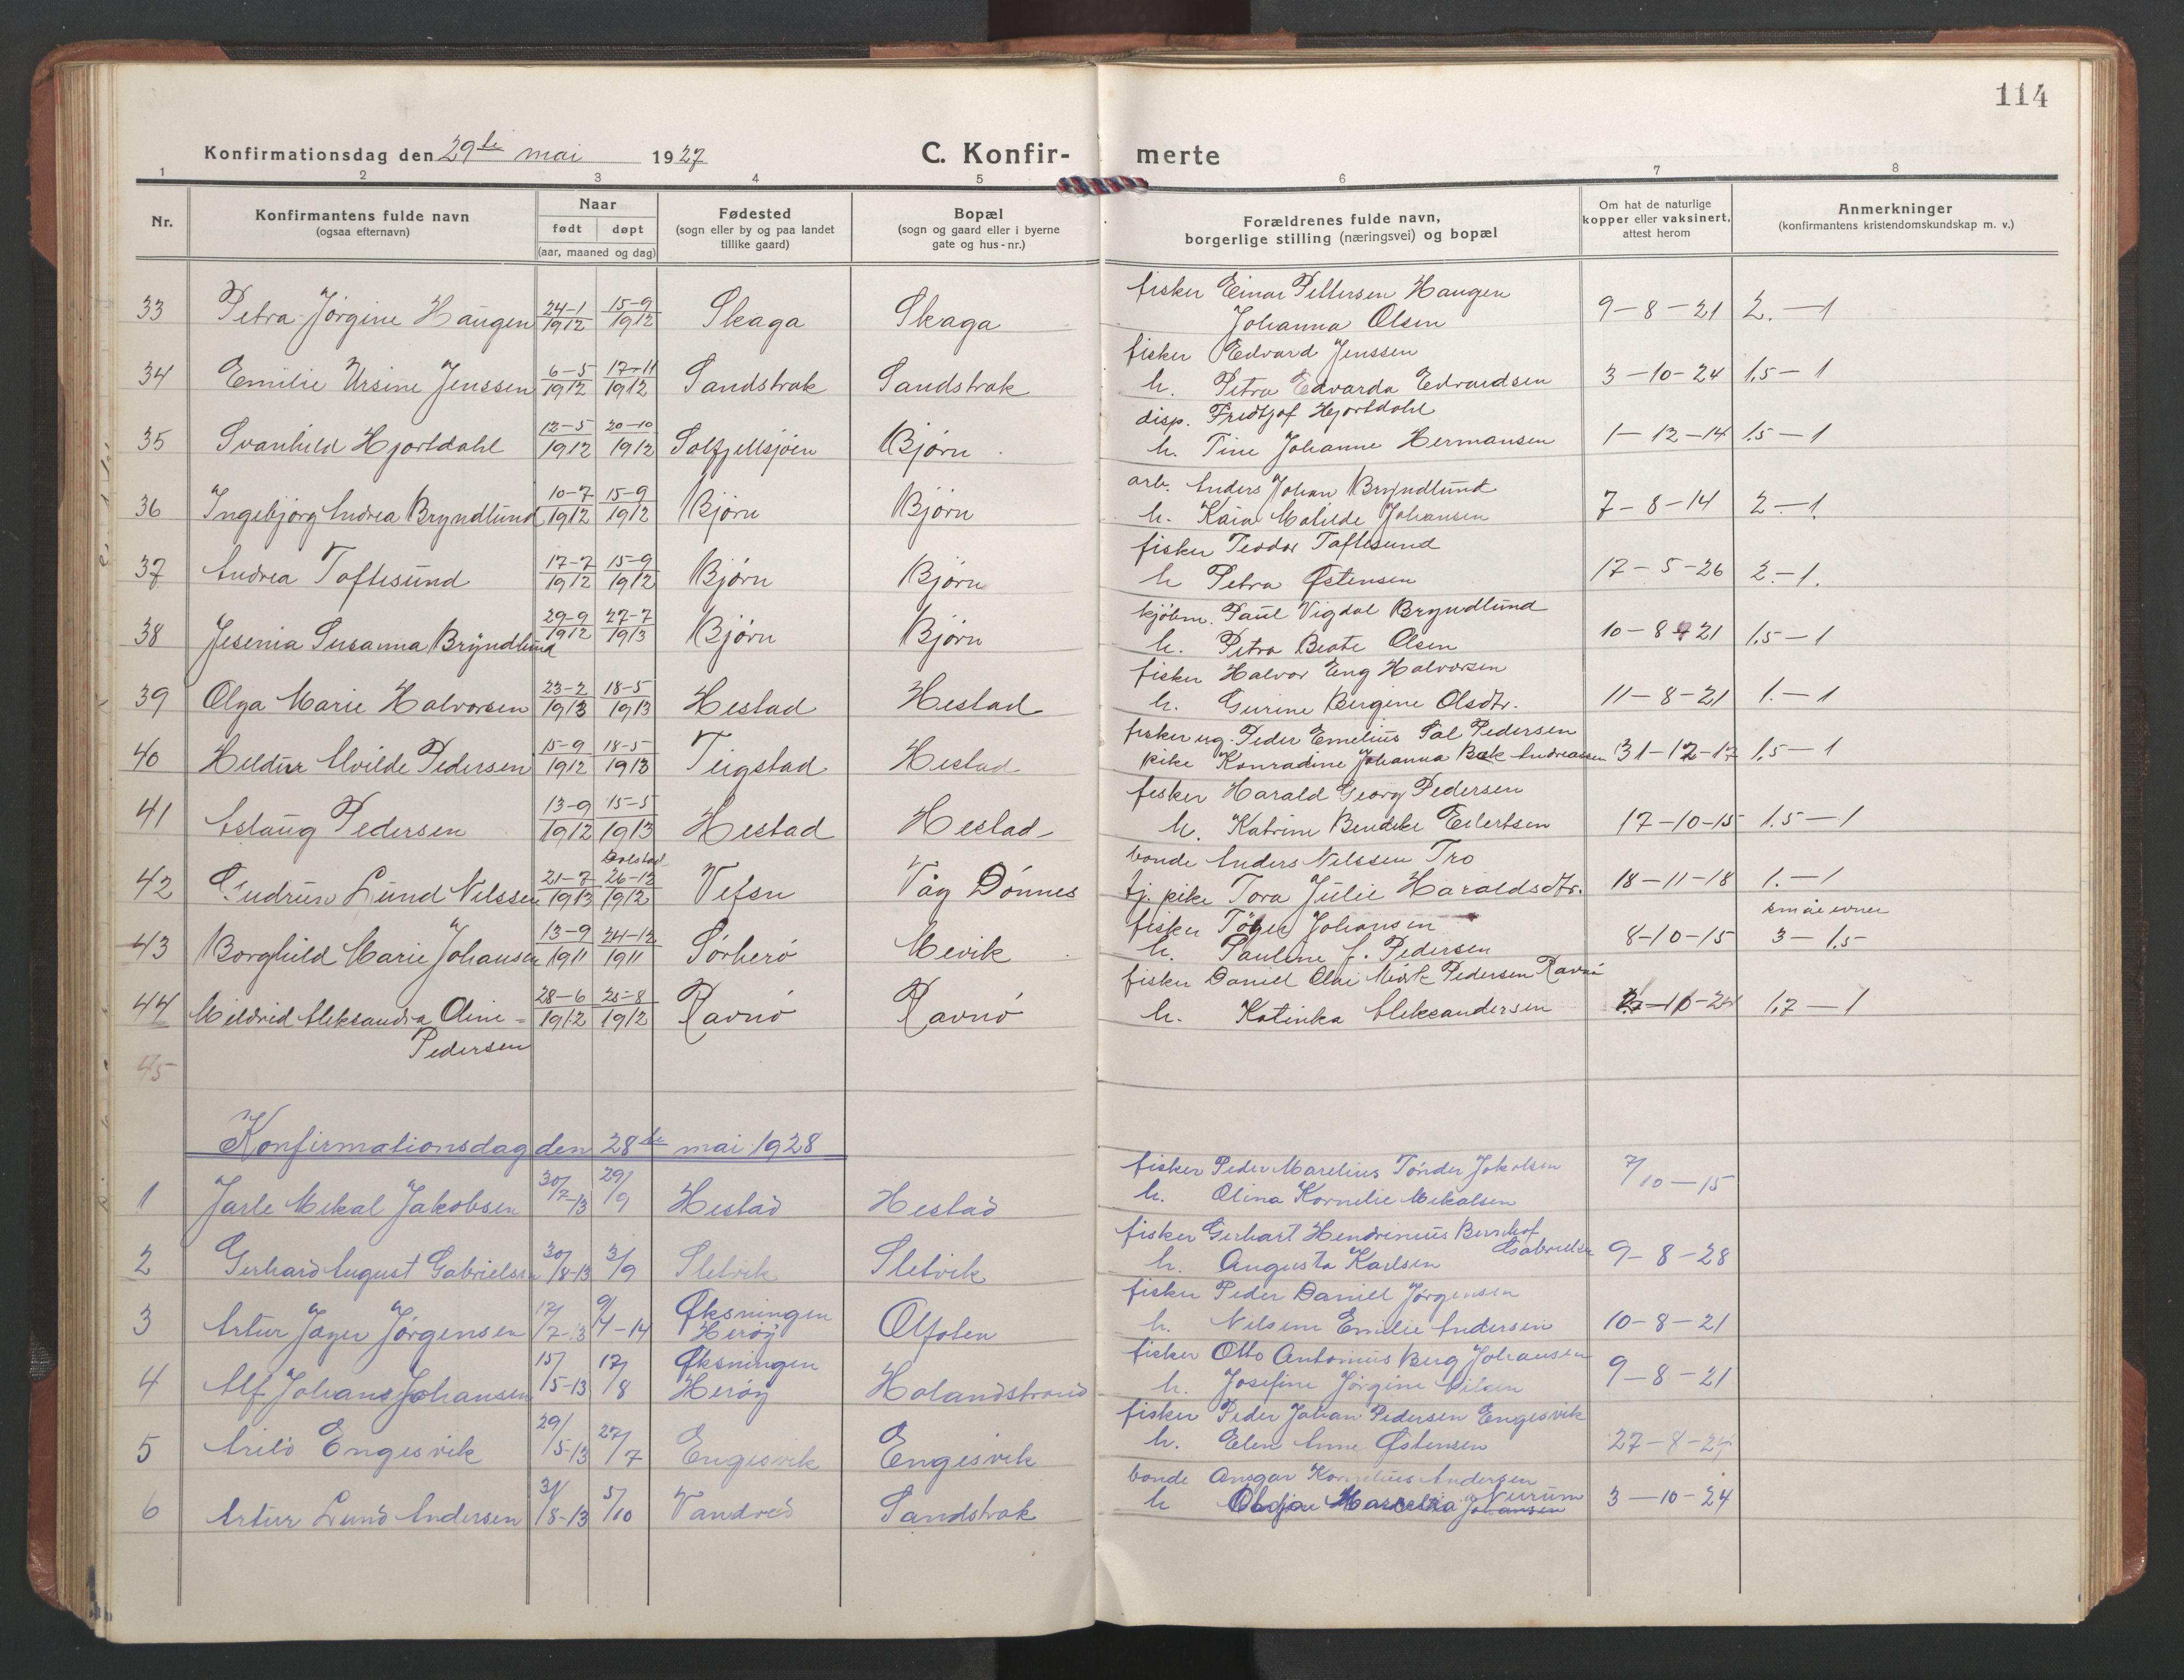 114
Konfirmationsdag den 29de mai 1927 C. Konfir- merte
1 2 3 4 5 6 7 8
Nr. Konfirmantens fulde navn (ogsaa efternavn) Naar født døpt (aar, maaned og dag) Fødested (sogn eller by og paa landet tillike gaard) Bopæl (sogn og gaard eller i byerne gate og hus-nr.) Forældrenes fulde navn, borgerlige stilling (næringsvei) og bopæl Om hat de naturlige kopper eller vaksinert, attest herom Anmerkninger (konfirmantens kristendomskundskap m. v.)
33 Petra Jørgine Haugen 24-1 1912 15-9 1912 Skaga Skaga fisker Einar Pettersen Haugen Johanna Olsen 9-8-21 2.-1
34 Emilie Ursine Jenssen 6-5 1912 17-11 1912 Sandstrak Sandstrak fisker Edvard Jenssen h. Petra Edvarda Edvardsen 3-10-24 1,5-1
35 Svanhild Hjortdahl 12-5 1912 20-10 1912 Solfjellsjøen Bjørn disp. Fredtjof Hjortdahl h. Tine Johanne Hermansen 1-12-14 1,5-1
36 Ingebjørg Andrea Bryndlund 10-7 1912 15-9 1912 Bjørn Bjørn arb. Anders Johan Bryndlund h. Kaia Matilde Johansen 7-8-14 2-1.
37 Andrea Toftesund 17-7 1912 15-9 1912 Bjørn Bjørn fisker Teodor Toftesund h Petra Østensen 17-5-26 2.-1.
38 Jesenia Susanna Bryndlund 29-9 1912 27-7 1913 Bjørn Bjørn kjøbm. Paul Vigdal Bryndlund h. Petra Beate Olsen 10-8-21 1,5-1
39 Olga Marie Halvorsen 23-2 1913 18-5 1913 Hestad Hestad fisker Halvor Eng Halvorsen h. Gurine Bergine Olsdtr. 11-8-21 1.-1
40 Heldur Alvilde Pedersen 15-9 1912 18-5 1913 Teigstad Hestad fisker ug. Peder Emelius Sal Pedersen pike Konradine Johanna Bak Andreassen 31-12-17 1,5-1
41 Aslaug Pedersen 13-9 1912 15-5 1913 Hestad Hestad fisker Harald Georg Pedersen h. Katrine Bendikte Eilertsen 17-10-15 1.5-1
42 Gudrun Lund Nilssen 21-7 1913 Dolstad 26-12 1912 Vefsn Våg Dønnes bonde Anders Nilssen Tro tj. pike Tora Julie Haraldsdtr. 18-11-18 1.-1
43 Borghild Marie Johansen 13-9 1911 24-12 1911 Sørherø Mevik fisker Johansen h. Pauline J. Pedersen 8-10-15 små evner 3-1,5
44 Mildrid Aleksandra Oline - Pedersen 28-6 1912 25-8 1912 Ravnø Ravnø fisker Daniel Olai Mørk Pedersen Ravnø h. Katinka Aleksandersen 1,7-1
45
Konfirmationsdag den 28de mai 1928
1 Jarle Mekal Jakobsen 30/7-13 29/9 Hestad Hestad fisker Peder Marelius Tønder Jakobsen h. Olina Kornelie Mikalsen 7/10-15
2 Gerhard August Gabrielsen 30/8-13 3/9 Sletvik Sletvik fisker Gerhart Hendrinius Bernhof Gabrielsen h. Augusta Karlsen 9-8-28
3 Artur Jager Jørgensen 17/7-13 9/4-14 Øksningen Herøy Olfoten fisker Peder Daniel Jørgensen h. Nilsine Emilie Andersen 10-8-21
4 Alf Johans Johansen 15/5-13 17/8 Øksningen Herøy Holandstrand fisker Otto Antonius Berg Johansen h. Josefine Jørgine Nilsen 9-8-21
5 Arild Engesvik 29/5-13 27/7 Engesvik Engesvik fisker Peder Johan Pedersen Engesvik h. Elen Anne Østensen 27-8-24
6 Artur Lund Andersen 31/8-13 5/10 Vandved Sandstrak bonde Ansgar Kornelius Andersen h Johansen 3-10-24